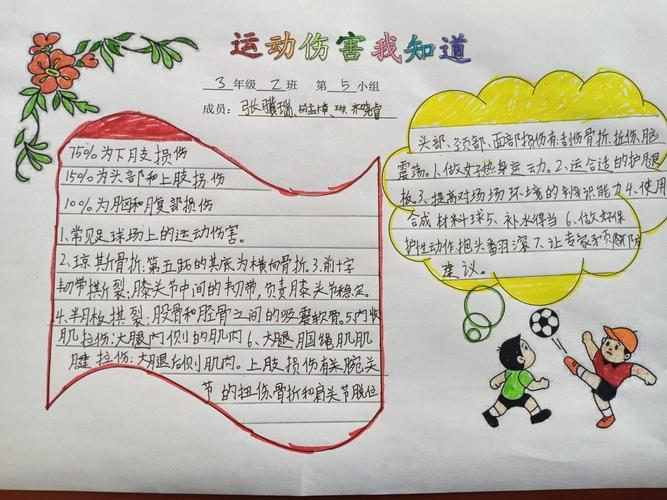 运动伤害我知道
3年级2班 第5小组
成员：张骥瑞、
75%为下月支损伤
15%为头部和上肢损伤
10%为胸和腹部损伤
1、常见足球场上的运动伤害。
2、琼斯骨折：第五跖的其底为横向骨折。3、前十字
韧带撕裂，膝关节中间的韧带，负责膝关节稳定。
4、半月板撕裂：股骨和胫骨之间的吸震软骨。5、内收
肌拉伤：大腿内侧的肌肉 6、大腿腘绳肌肌
腱拉伤：大腿后侧肌肉。上肢损伤有关腕关
节的扭伤、骨折和肩关节脱位
头部、颈部、面部损伤有：刮伤骨折、扯伤、脑
震荡。1、做好热身运动。2、运合适的护腿
板。3、提高对场场环境的辨识能力4、使用
合成材料球5、补水得当6、做好保
护性动作把头
建议。